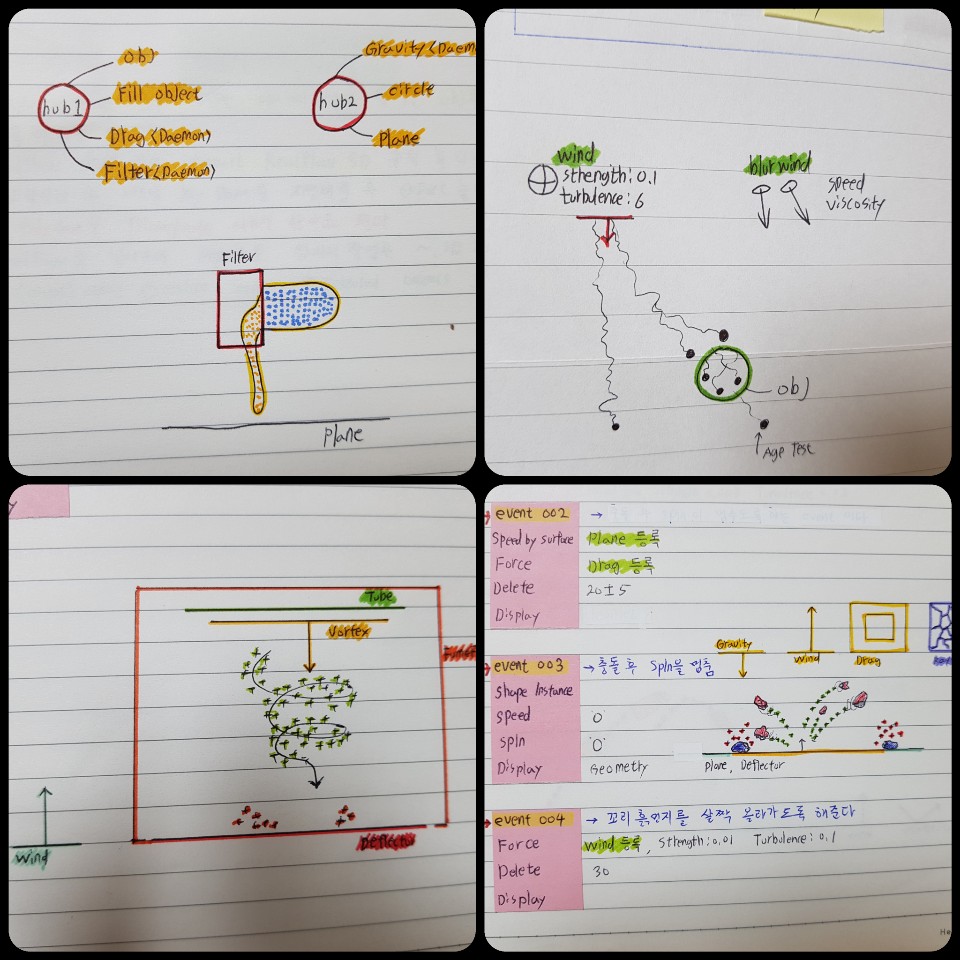 obj
hub1
Fill object
Drag<Daemon>
Filter<Daemon>
Gravity<Daem
hub2
circle
Plane
Filter
Plane
wind
sthength: 0.1
turbulence: 6
blur wind
speed
viscosity
obj
Age Test
Tube
Vortex
Wind
Deflector
event 002 →
Speed by surface Plane 등록
Force Drag 등록
Delete 20±5
Display
Gravity
Wind
Drag
event 003 → 충돌 후 Spin을 멈춤
Shape Instance
Speed 0
Spin 0
Display Geometry
Plane, Deflector
event 004 → 꼬리 흙먼지를 살짝 올라가도록 해준다
Force Wind 등록, Strength: 0.01 Turbulence: 0.1
Delete 30
Display